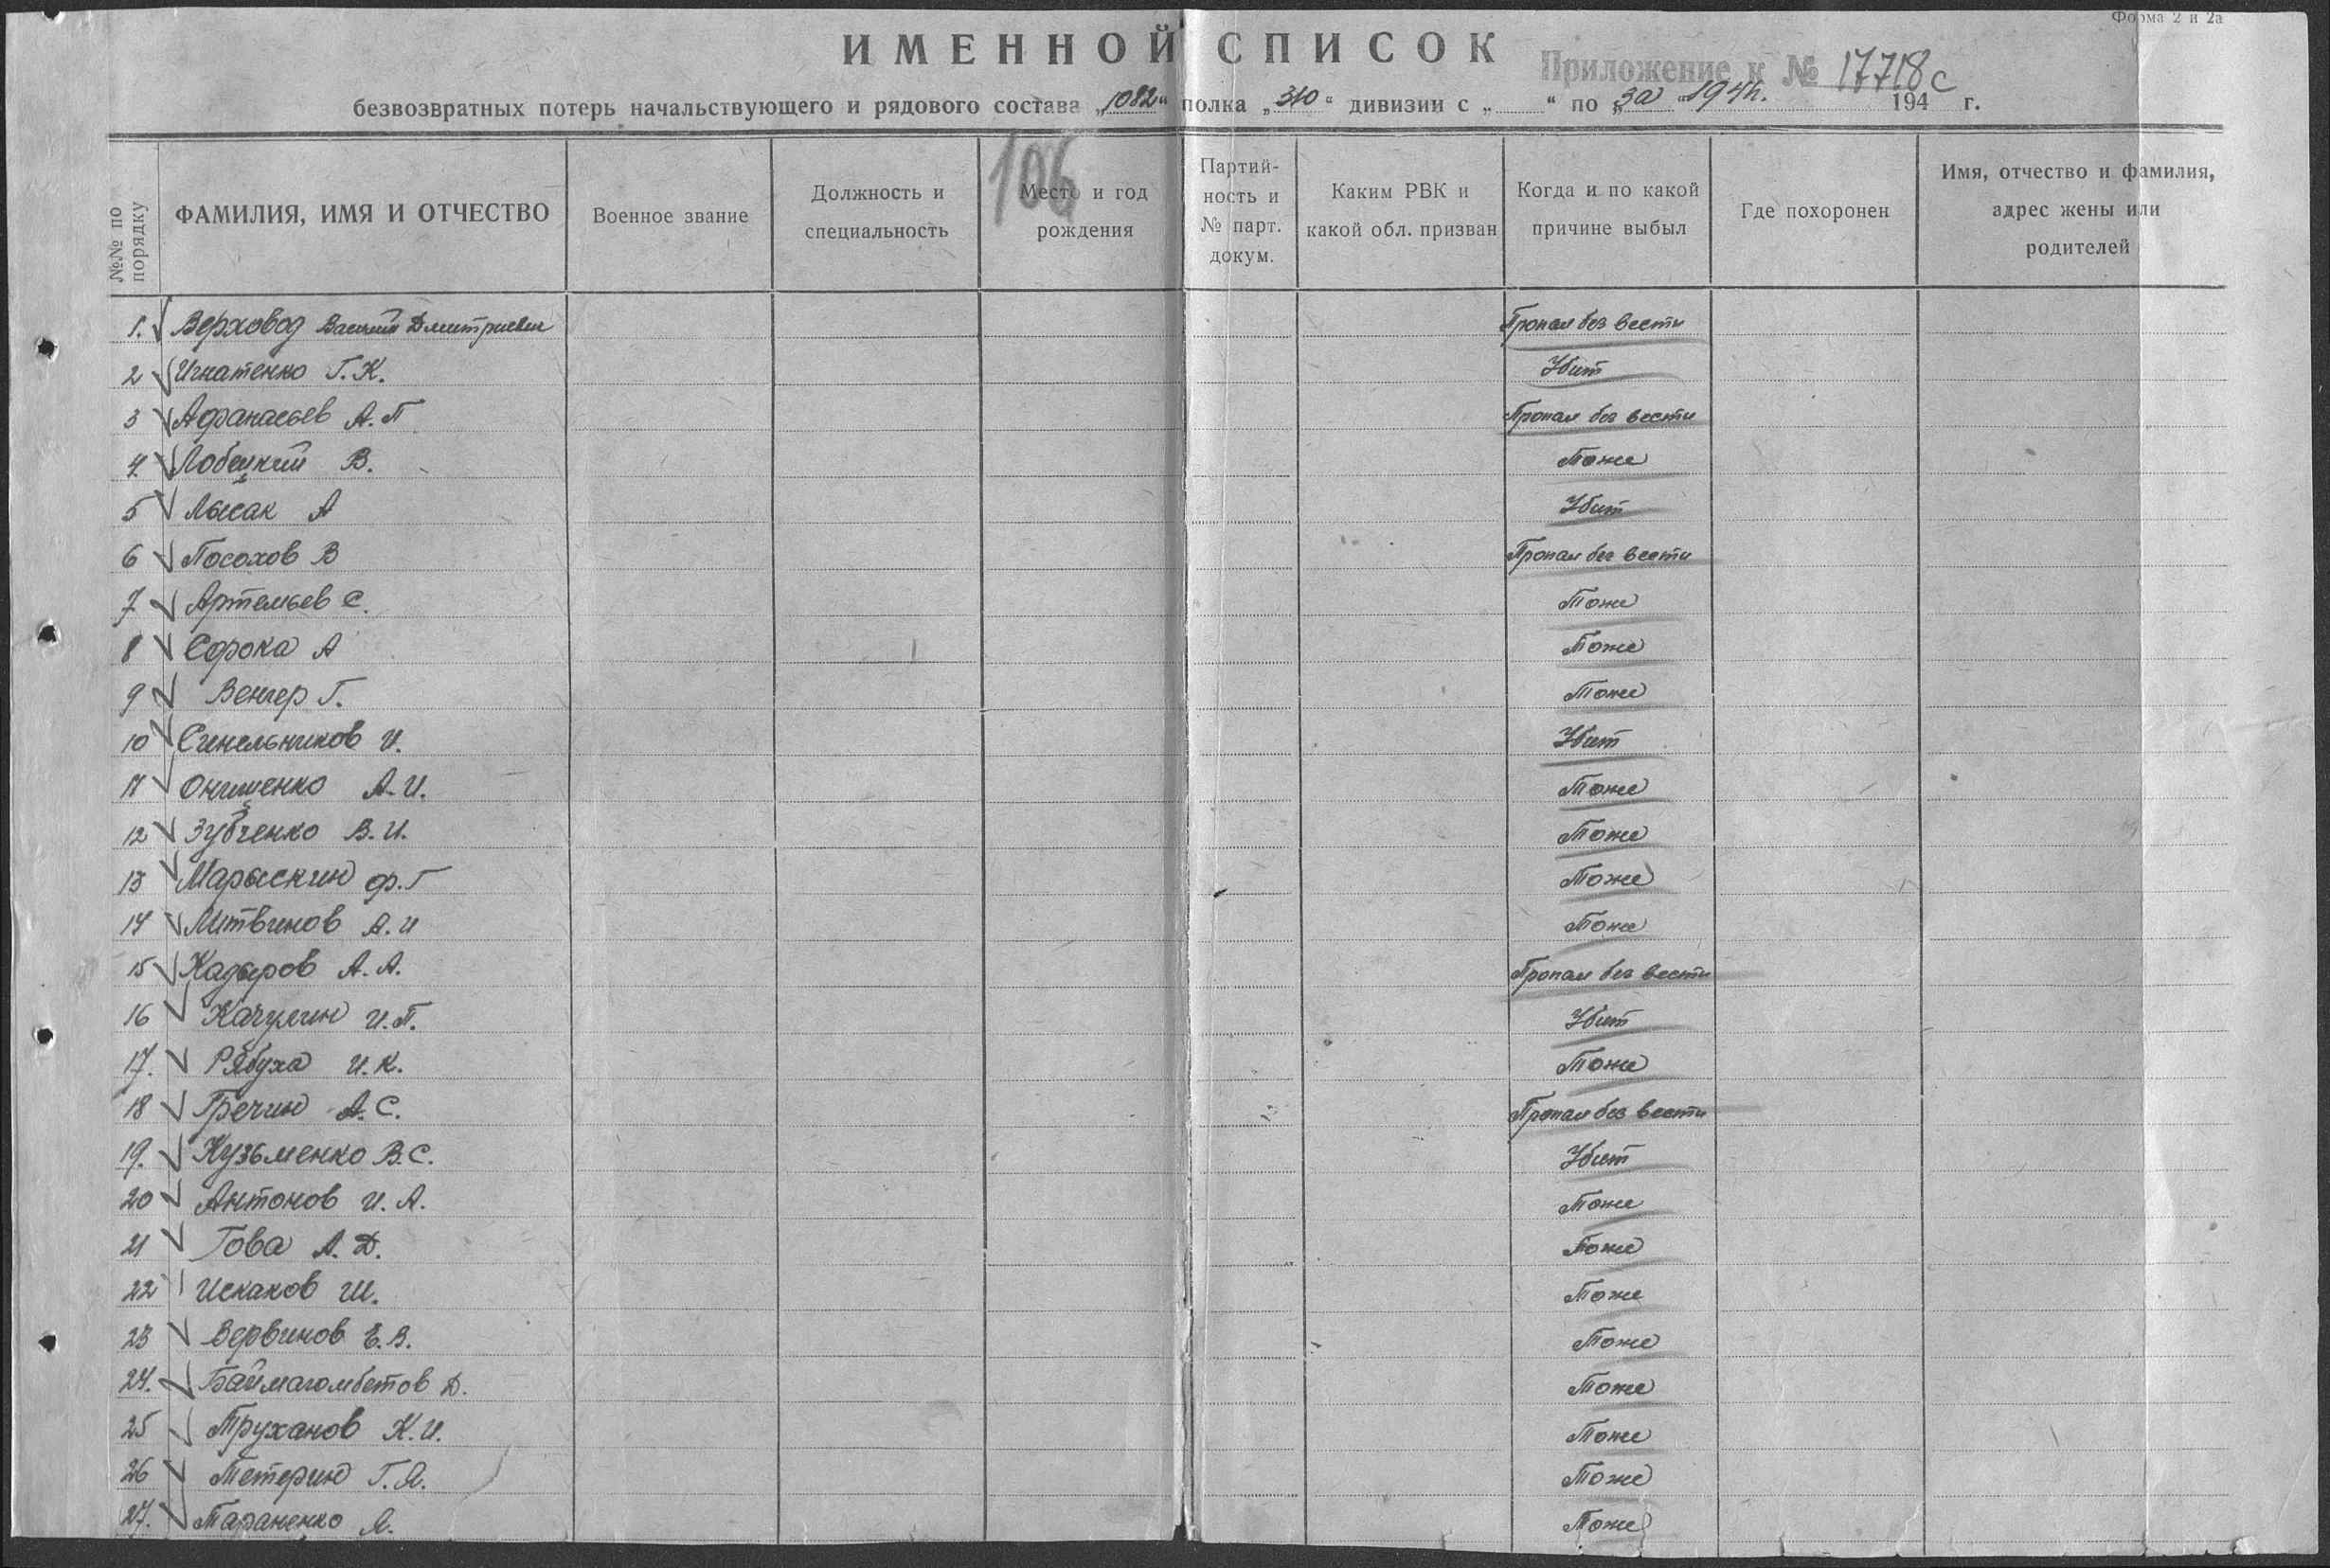 Форма 2 и 2а
ИМЕННОЙ СПИСОК
Приложение к № 17718с
безвозвратных потерь начальствующего и рядового состава „1082“ полка „310“ дивизии с „ “ по „за “ 1944г. 194 г.
106
№№ по порядку
ФАМИЛИЯ, ИМЯ И ОТЧЕСТВО
Военное звание
Должность и специальность
Место и год рождения
Партийность и № парт. докум.
Каким РВК и какой обл. призван
Когда и по какой причине выбыл
Где похоронен
Имя, отчество и фамилия, адрес жены или родителей
1. Верховод Василий Дмитриевич Пропал без вести
2 Игнатенко Г.К. Убит
3 Афанасьев А.П Пропал без вести
4 Лобецкий В. Тоже
5 Лысак А Убит
6 Посохов В Пропал без вести
7 Артемьев С. Тоже
8 Сорока А Тоже
9 Венгер Г. Тоже
10 Синельников И. Убит
11 Онищенко А.И. Тоже
12 Зубченко В.И. Тоже
13 Марыскин Ф.Г Тоже
14 Литвинов А.И Тоже
15 Кадыров А.А. Пропал без вести
16 Качулин И.П. Убит
17. Рябуха И.К. Тоже
18 Гречин А.С. Пропал без вести
19. Кузьменко В.С. Убит
20 Антонов И.А. Тоже
21 Гова А.Д. Тоже
22 Искаков Ш. Тоже
23 Вервинов Е.В. Тоже
24. Баймагомбетов Д. Тоже
25 Труханов К.И. Тоже
26 Тетерин Г.Я. Тоже
27. Тараненко Я. Тоже